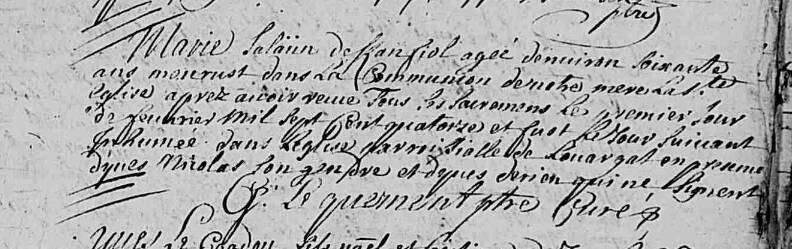 ptre
Marie Salaün de fanfiol ageé denuiron Soixante
ans mourust dans La Communion de notre mere La Ste
Eglise aprez auoir receue Tous les sacremens Le premier Jour
de feuurier Mil Sept Cent quatorze et fuot Le Jour suiuant
Inhumée dans L'eglise parrossialle de Louargat en presence
dyues Nicolas son gendre et dyues derien qui ne signent
G. Le guernent ptre Curé
yues Le et